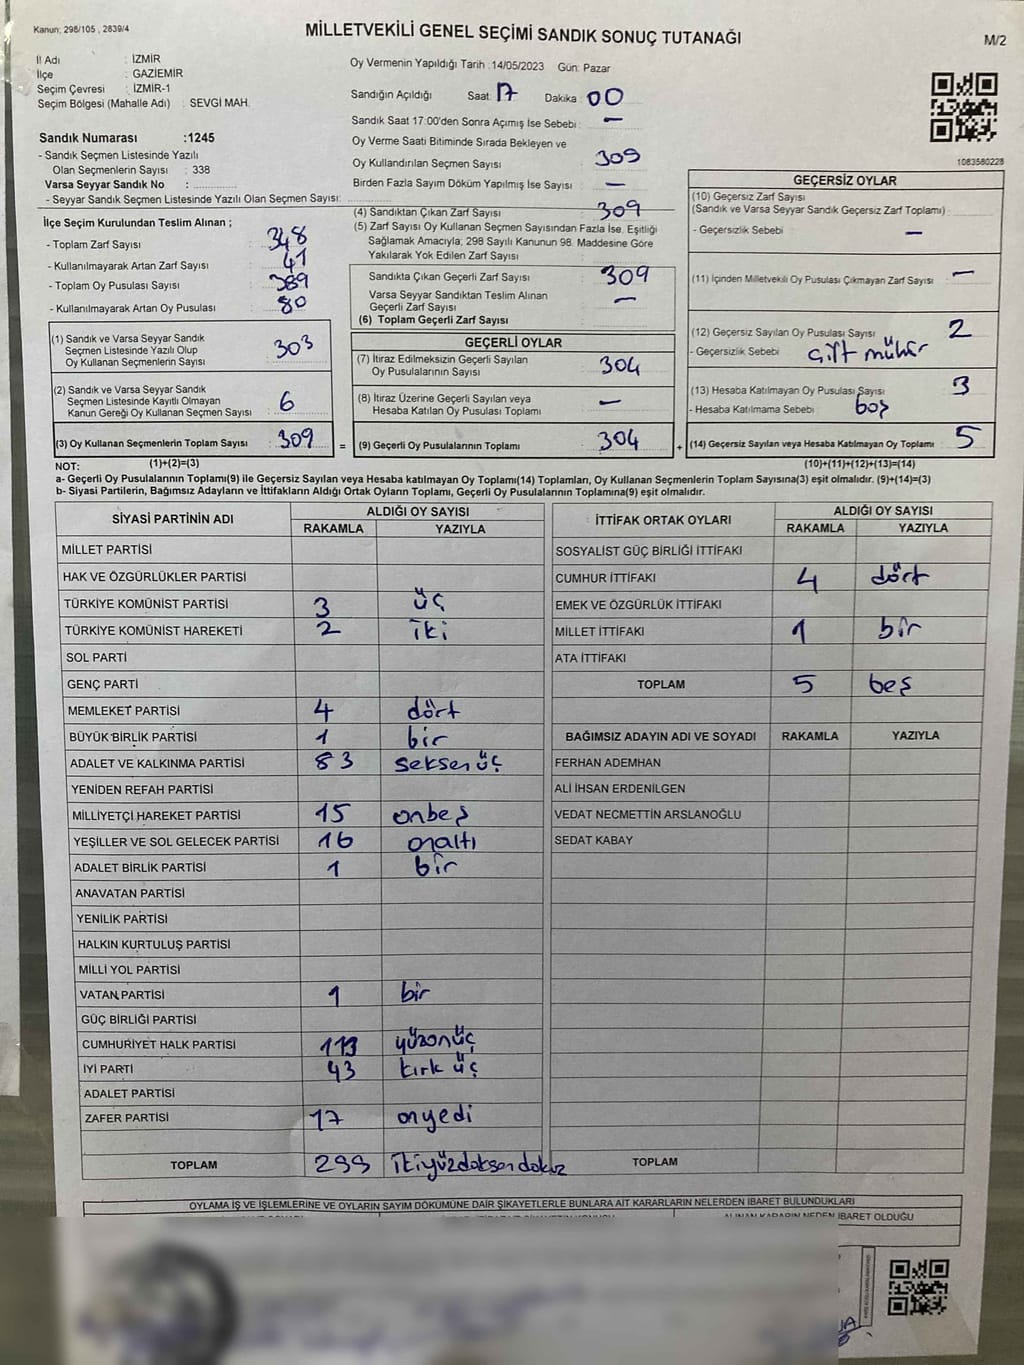 Kanun; 298/105 , 2839/4
MİLLETVEKİLİ GENEL SEÇİMİ SANDIK SONUÇ TUTANAĞI
M/2
İl Adı : İZMİR
İlçe : GAZİEMİR
Seçim Çevresi : İZMİR-1
Seçim Bölgesi (Mahalle Adı) : SEVGİ MAH.
Oy Vermenin Yapıldığı Tarih :14/05/2023 Gün: Pazar
Sandığın Açıldığı Saat 17 Dakika 00
Sandık Saat 17:00'den Sonra Açımış İse Sebebi : –
Oy Verme Saati Bitiminde Sırada Bekleyen ve
Oy Kullandırılan Seçmen Sayısı 309
Birden Fazla Sayım Döküm Yapılmış İse Sayısı –
1083580228
Sandık Numarası :1245
- Sandık Seçmen Listesinde Yazılı
Olan Seçmenlerin Sayısı : 338
Varsa Seyyar Sandık No :
- Seyyar Sandık Seçmen Listesinde Yazılı Olan Seçmen Sayısı:
İlçe Seçim Kurulundan Teslim Alınan ;
- Toplam Zarf Sayısı 348
- Kullanılmayarak Artan Zarf Sayısı 41
- Toplam Oy Pusulası Sayısı 389
- Kullanılmayarak Artan Oy Pusulası 80
(1) Sandık ve Varsa Seyyar Sandık
Seçmen Listesinde Yazılı Olup
Oy Kullanan Seçmenlerin Sayısı 303
(2) Sandık ve Varsa Seyyar Sandık
Seçmen Listesinde Kayıtlı Olmayan
Kanun Gereği Oy Kullanan Seçmen Sayısı 6
(3) Oy Kullanan Seçmenlerin Toplam Sayısı 309 =
(1)+(2)=(3)
(4) Sandıktan Çıkan Zarf Sayısı 309
(5) Zarf Sayısı Oy Kullanan Seçmen Sayısından Fazla İse, Eşitliği
Sağlamak Amacıyla; 298 Sayılı Kanunun 98. Maddesine Göre
Yakılarak Yok Edilen Zarf Sayısı
Sandıkta Çıkan Geçerli Zarf Sayısı 309
Varsa Seyyar Sandıktan Teslim Alınan
Geçerli Zarf Sayısı –
(6) Toplam Geçerli Zarf Sayısı
GEÇERLİ OYLAR
(7) İtiraz Edilmeksizin Geçerli Sayılan
Oy Pusulalarının Sayısı 304
(8) İtiraz Üzerine Geçerli Sayılan veya
Hesaba Katılan Oy Pusulası Toplamı –
(9) Geçerli Oy Pusulalarının Toplamı 304 +
GEÇERSİZ OYLAR
(10) Geçersiz Zarf Sayısı
(Sandık ve Varsa Seyyar Sandık Geçersiz Zarf Toplamı) :
- Geçersizlik Sebebi –
(11) İçinden Milletvekili Oy Pusulası Çıkmayan Zarf Sayısı –
(12) Geçersiz Sayılan Oy Pusulası Sayısı 2
- Geçersizlik Sebebi çift mühür
(13) Hesaba Katılmayan Oy Pusulası Sayısı 3
- Hesaba Katılmama Sebebi boş
(14) Geçersiz Sayılan veya Hesaba Katılmayan Oy Toplamı 5
(10)+(11)+(12)+(13)=(14)
NOT:
a- Geçerli Oy Pusulalarının Toplamı(9) ile Geçersiz Sayılan veya Hesaba katılmayan Oy Toplamı(14) Toplamları, Oy Kullanan Seçmenlerin Toplam Sayısına(3) eşit olmalıdır. (9)+(14)=(3)
b- Siyasi Partilerin, Bağımsız Adayların ve İttifakların Aldığı Ortak Oyların Toplamı, Geçerli Oy Pusulalarının Toplamına(9) eşit olmalıdır.
SİYASİ PARTİNİN ADI
ALDIĞI OY SAYISI
RAKAMLA YAZIYLA
MİLLET PARTİSİ
HAK VE ÖZGÜRLÜKLER PARTİSİ
TÜRKİYE KOMÜNİST PARTİSİ 3 üç
TÜRKİYE KOMÜNİST HAREKETİ 2 iki
SOL PARTİ
GENÇ PARTİ
MEMLEKET PARTİSİ 4 dört
BÜYÜK BİRLİK PARTİSİ 1 bir
ADALET VE KALKINMA PARTİSİ 83 seksen üç
YENİDEN REFAH PARTİSİ
MİLLİYETÇİ HAREKET PARTİSİ 15 onbeş
YEŞİLLER VE SOL GELECEK PARTİSİ 16 onaltı
ADALET BİRLİK PARTİSİ 1 bir
ANAVATAN PARTİSİ
YENİLİK PARTİSİ
HALKIN KURTULUŞ PARTİSİ
MİLLİ YOL PARTİSİ
VATAN PARTİSİ 1 bir
GÜÇ BİRLİĞİ PARTİSİ
CUMHURİYET HALK PARTİSİ 113 yüzonüç
İYİ PARTİ 43 kırk üç
ADALET PARTİSİ
ZAFER PARTİSİ 17 onyedi
TOPLAM 299 ikiyüzdoksandokuz
İTTİFAK ORTAK OYLARI
ALDIĞI OY SAYISI
RAKAMLA YAZIYLA
SOSYALİST GÜÇ BİRLİĞİ İTTİFAKI
CUMHUR İTTİFAKI 4 dört
EMEK VE ÖZGÜRLÜK İTTİFAKI
MİLLET İTTİFAKI 1 bir
ATA İTTİFAKI
TOPLAM 5 beş
BAĞIMSIZ ADAYIN ADI VE SOYADI RAKAMLA YAZIYLA
FERHAN ADEMHAN
ALİ İHSAN ERDENİLGEN
VEDAT NECMETTİN ARSLANOĞLU
SEDAT KABAY
TOPLAM
OYLAMA İŞ VE İŞLEMLERİNE VE OYLARIN SAYIM DÖKÜMÜNE DAİR ŞİKAYETLERLE BUNLARA AİT KARARLARIN NELERDEN İBARET BULUNDUKLARI
ALINAN KARARIN NEDEN İBARET OLDUĞU